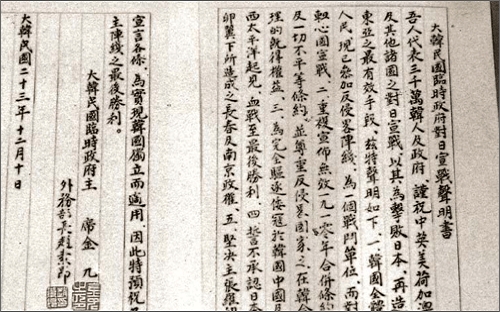 大韓民國臨時政府對日宣戰聲明書
吾人代表三千萬韓人及政府、謹祝中英美荷加澳
及其他諸國之對日宣戰、以其為擊敗日本、再造
東亞之最有效手段、茲特聲明如下、一韓國全體
人民、現已參加反侵畧陣綫、為一個戰鬥單位、而對
軸心國宣戰、二、重複宣佈無效一九一〇年合併條約
及一切不平等條約、並尊重反侵畧國家之在韓合
理的既得權益、三、為完全驅逐倭寇於韓國中國及
西太平洋起見、血戰至最後勝利、四、誓不承認日本
卵翼下所造成之長春及南京政權、五、堅決主張羅邱
宣言各條、為實現韓國獨立而適用、因此特預祝民
主陣綫之最後勝利。
大韓民國臨時政府主 席金 九
外務部長趙素卬
大韓民國二十三年十二月十日